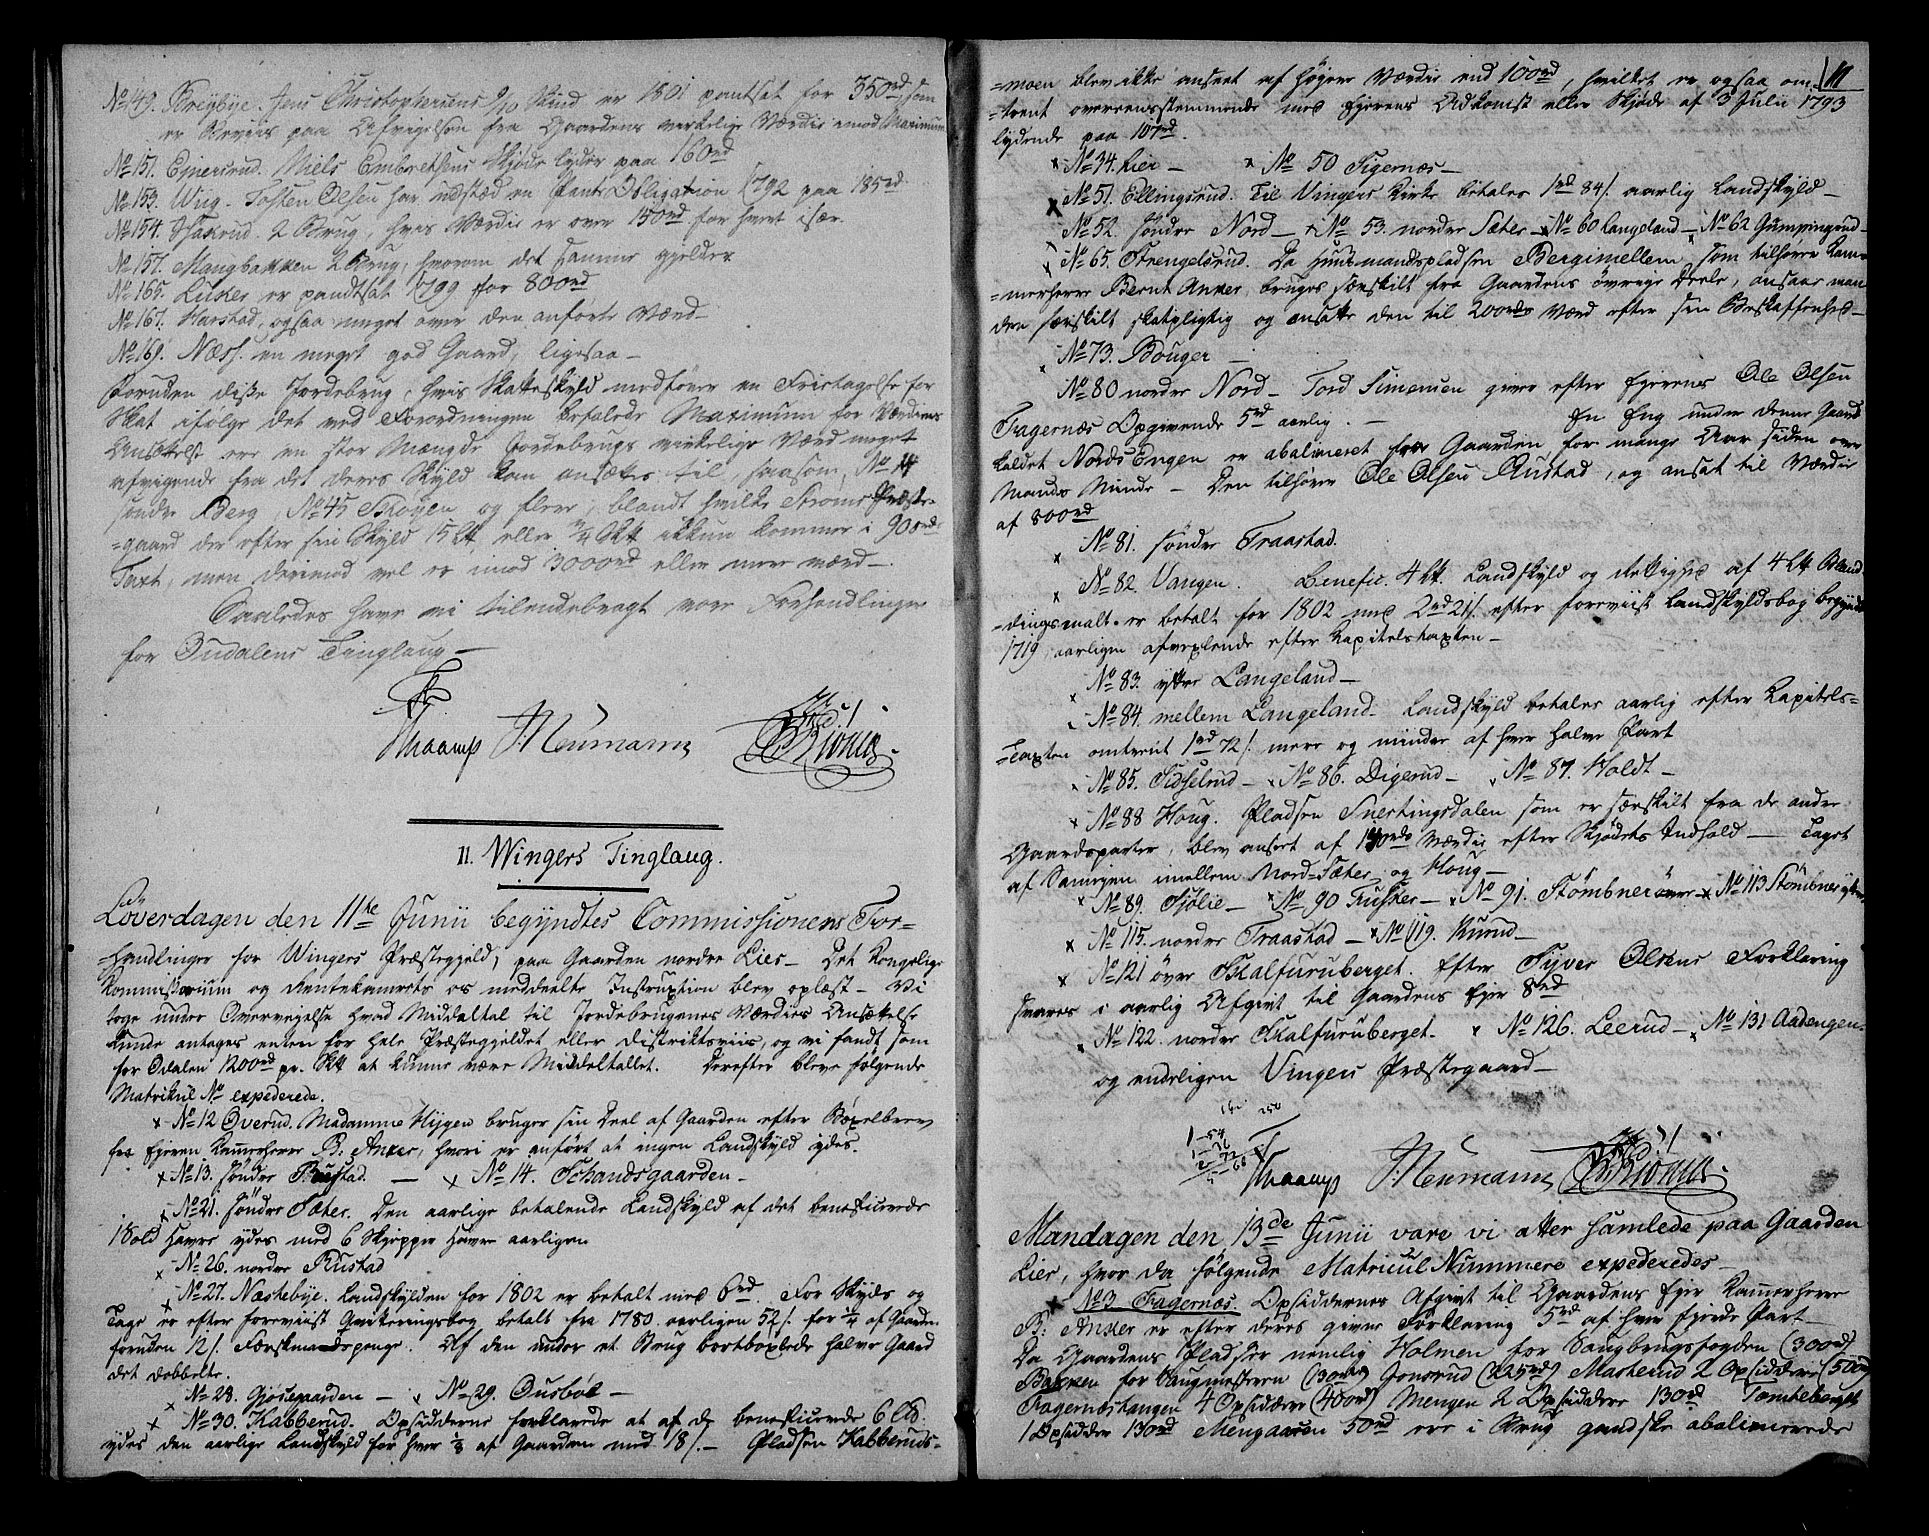 No 149. Breybye. Jens Christophersens 9/10 Skind er 1801 pantsat for 350rd, som
er Beviis paa Afvigelsen fra Gaardens virkelige Værdie imod Maximum
No 151. Ejnersrud. Niels Embretsens Skjøde lyder paa 160rd
No 153. Wug. Tosten Olsen har udstæd en Pant Obligation 1792 paa 185rd
No 154. Haxrud. 2 Brug, hvis Værdie er over 150rd for hvert især.
No 157. Mangbakken 2 Brug, hvorom det samme gjelder
No 165. Lusker er pandtsat 1799 for 800rd
No 167. Harstad, ogsaa meget over den anførte Værd—
No 169. Næss. en meget god Gaard, ligesaa—
Foruden disse Jordebrug, hvis Skatteskyld medfører en Fristagelse for
Skat ifølge det ved Forordningen befalede Maximum for Værdiens
Ansættelse ere en stor Mængde Jordebrugs virkelige Værd meget
afvigende fra det deres Skyld kan ansættes til saasom, No 14
søndre Berg, No 45 Skogen og flere, blandt hvilke Strøms Præste-
=gaard der efter sin Skyld 15 Lt, eller 3/4 Skt ikkun kommer i 900rds
Taxt, men derimod vel er imod 3000rd eller mere værd—.
Saaledes have vi tilendebragt vore Forhandlinger
for Oudalens Tinglaug—
Thaamp J. Neumann
11. Wingers Tinglaug.
Løverdagen den 11te Junii begyndtes Commissionens For=
handlinger for Wingers Præstegjeld, paa Gaarden nordre Lier— Det Kongelige
Kommissorium og Rentekamerets os meddeelte Instruxtion blev oplæst— Vi
toge under Overvejelse hvad Middeltal til Jordebrugenes Værdies Ansættelse
kunde antages enten for hele Præstegjeldet eller Distriktsviis, og vi fandt som
for Odalen 1200rd pr. Skt at kunne være Middeltallet. Derefter bleve følgende
Matrikul No expederede.
× No 12 Overud. Madamme Hijgen bruger sin Deel af Gaarden efter Bøxelbrev
fra Ejeren Kammerherre B: Anker, hvori er anført at ingen Landskyld ydes.
× No 13. søndre Bustad. — × No 14. Schandsgaarden—
× No 21. søndre Sæter. Den aarlige betalende Landskyld af det beneficerede
1 Sold Havre ydes med 6 Skjepper Havre aarligen
× No 26. nordre Rustad
× No 27. Næstebye. Landskylden for 1802 er betalt med 6rd. For Skyds og
Tage er efter foreviist Qvitteringsbog betalt fra 1780 aarligen 52/. for 1/4 af Gaarden
foruden 12/. Førstmandspenge. Af den under et Brug bortbøxlede halve Gaard
det dobbelte.
× No 28. Gjøsegaarden — × No 29. Ousbøl—
× No 30. Kabberud. Opsidderne forklarede at af de beneficerede 6 Lb.
ydes den aarlige Landskyld for hver 1/3 af Gaarden med 18/.— Pladsen Kabberuds-
11
=moen blev ikke anseet af højere Værdie end 100rd, hvilket er ogsaa om-
=trent overeensstemmende med Ejerens Adkomst eller Skjøde af 3 Julii 1793
lydende paa 107rd.
× No 34. Lier— × No 50 Tigernæs—
× No 51. Ellingsrud. Til Vingers Kirke betales 1rd 84/. aarlig Landskyld—
× No 52. søndre Nord— × No 53. nordre Sæter— × No 60 Langeland— × No 62 Gumpingrud—
× No 65. Strengelsrud. Da Huusmandspladsen Bergimellem, som tilhører Kam-
=merherre Bernt Anker, bruges særskilt fra Gaardens øvrige Deele, ansaae man
den særskilt skatpligtig og ansatte den til 200rds Værd efter sin Beskaffenhed—
× No 73. Bouger—
No 80 nordre Nord— Tord Simensen giver efter Ejerens Ole Olsen
Fagernæs Opgivende 5rd aarlig.— En Eng under denne Gaard
kaldet Nords Engen er abalineret fra Gaarden for mange Aar siden over
Mands Minde— Den tilhører Ole Olsen Rustad, og ansat til Værdie
af 800rd
× No 81. søndre Traastad.
× No 82. Vangen. Benefic. 4 Lt. Landskyld og Rettighed af 4 Lt Bland-
=dingsmalt er betalt for 1802 med 2rd 21/. efter foreviist Landskyldsbog begyndt
1719, aarligen afvexlende efter Kapitelstaxten—
× No 83. ytre Langeland—
× No 84. mellem Langeland— Landskyld betales aarlig efter Kapitels-
=Taxten omtrent 1rd 72/. mere og mindre af hver halve Part
× No 85. Tidselrud— × No 86. Digerud— × No 87. Holdt—
× No 88 Houg. Pladsen Snertingsdalen som er særskilt fra de andre
Gaardsparter, blev anseet af 150rds Værdie efter Skjødets Indhold— Taget
af Sameyen imellem Nord-Sæter og Houg—
× No 89. Sjølie— × No 90 Trusker— × No 91. Stømbner øvre— × No 113 Stømbner ytre
× No 115. nordre Traastad— × No 119. Kurud—
× No 121 øvre Skalfuruberget. Efter Syver Olsens Forklaring
svares i aarlig Afgivt til Gaardens Ejer 8rd
× No 122. nordre Skalfuruberget. × No 126. Leerud— × No 131 Aadengen—
og endeligen Vingers Præstegaard—
Thaamp J. Neumann
Mandagen den 13de Junii vare vi atter samlede paa Gaarden
Lier, hvor da følgende Matricul Nummere expederedes—
× No 3 Fagernæs. Opsiddernes Afgivt til Gaardens Ejer Kammerherre
B: Anker er efter deres givne Forklaring 5rd af hver fjerde Part—
Da Gaardens Pladser nemlig Holmen for Saugbrugsfogden (300rd)
Bakken for Saugmesteren (130rd) Jonsrud (225rd) Masterud 2 Opsiddere (500rd)
Fagernæstangen 4 Opsiddere (400rd) Mengen 2 Opsiddere 130rd Tomteberget
1 Opsidder 130rd Mengaaren 50rd ere i Brug gandske abalienerede